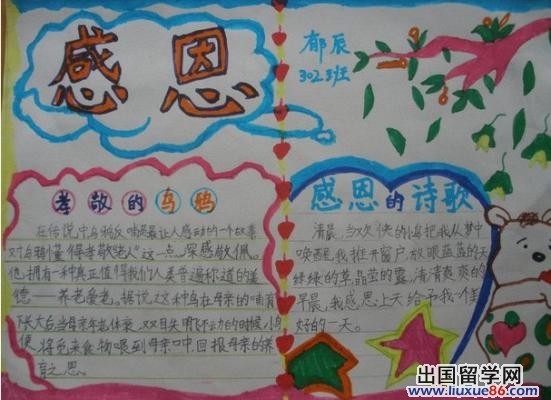 感恩
郁辰
302班
孝敬的乌鸦
在传说中乌鸦反哺是最让人感动的一个故事
对乌鸦懂得孝敬"老人"这一点,深感敬佩。
他,拥有一种真正值得我们人类普遍称道的美
德——养老爱老。据说这种鸟在母亲的哺育
下长大后,当母亲年老体衰,双目失明飞不动的时候,小鸟
便将觅来食物喂到母亲口中,回报母亲的养
育之恩。
感恩的诗歌
清晨,当欢快的小鸟把我从梦中
唤醒,我推开窗户,放眼蓝蓝的天
绿绿的草,晶莹的露,清清爽爽的
早晨,我感恩上天给予我一个美
好的一天。
出国留学网
www.liuxue86.com